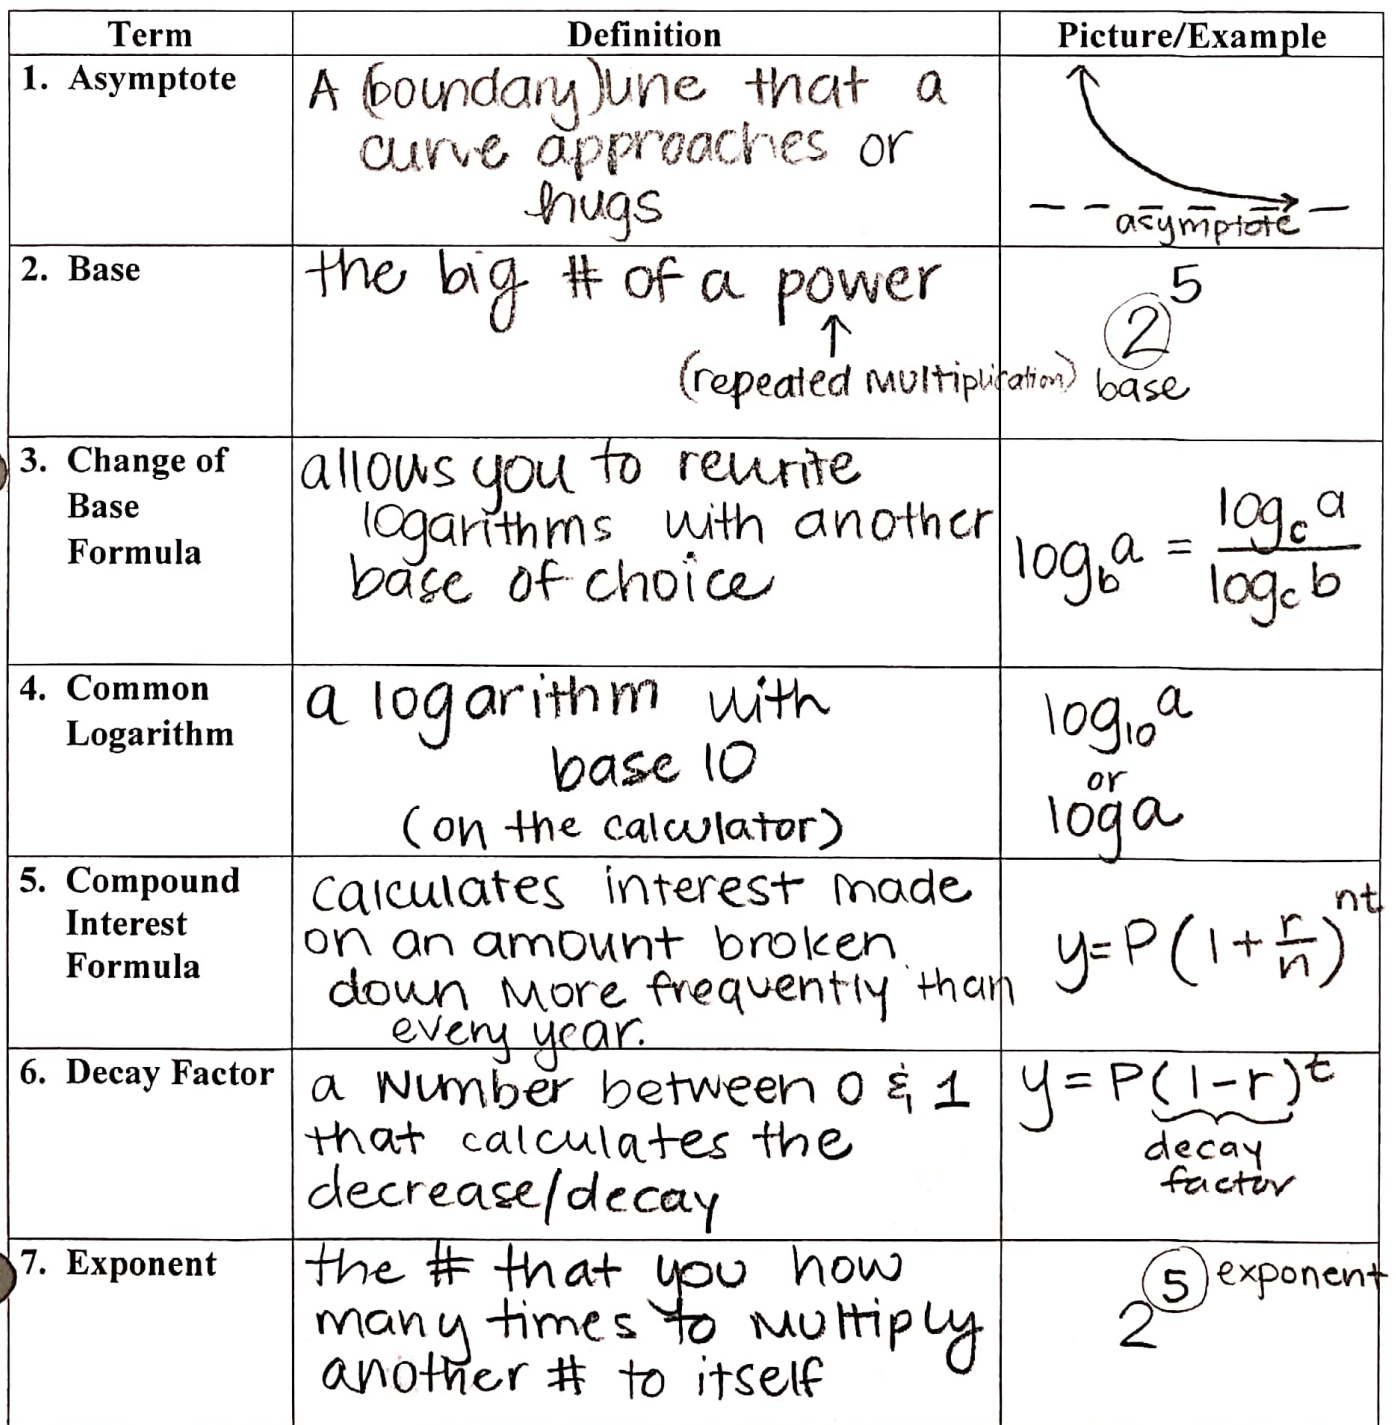 Term Definition Picture/Example
1. Asymptote
A (boundary) line that a
curve approaches or
hugs
asymptote
2. Base
the big # of a power
↑
(repeated multiplication)
2⁵
base
3. Change of
Base
Formula
allows you to rewrite
logarithms with another
base of choice
log_b a = log_c a / log_c b
4. Common
Logarithm
a logarithm with
base 10
(on the calculator)
log₁₀ a
or
log a
5. Compound
Interest
Formula
calculates interest made
on an amount broken
down more frequently than
every year.
y=P(1+r/n)^nt
6. Decay Factor
a number between 0 & 1
that calculates the
decrease/decay
y=P(1-r)^t
decay
factor
7. Exponent
the # that you how
many times to multiply
another # to itself
2⁵ exponent